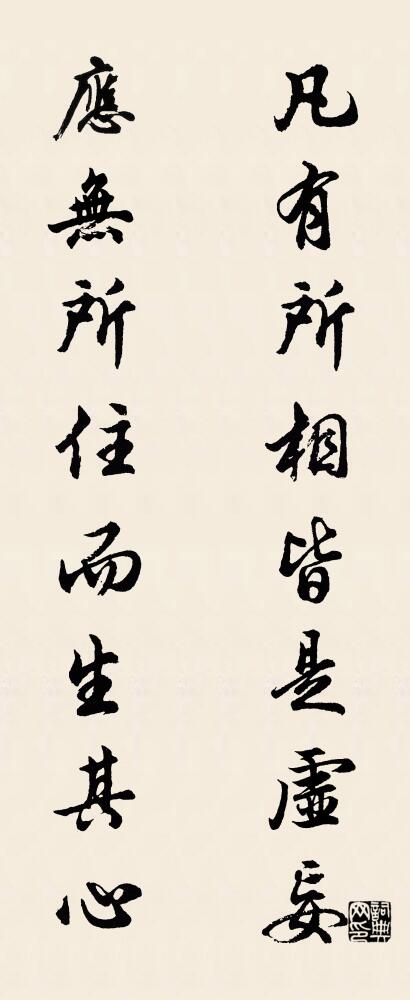 凡有所相皆是虛妄
應無所住而生其心
詞典网印